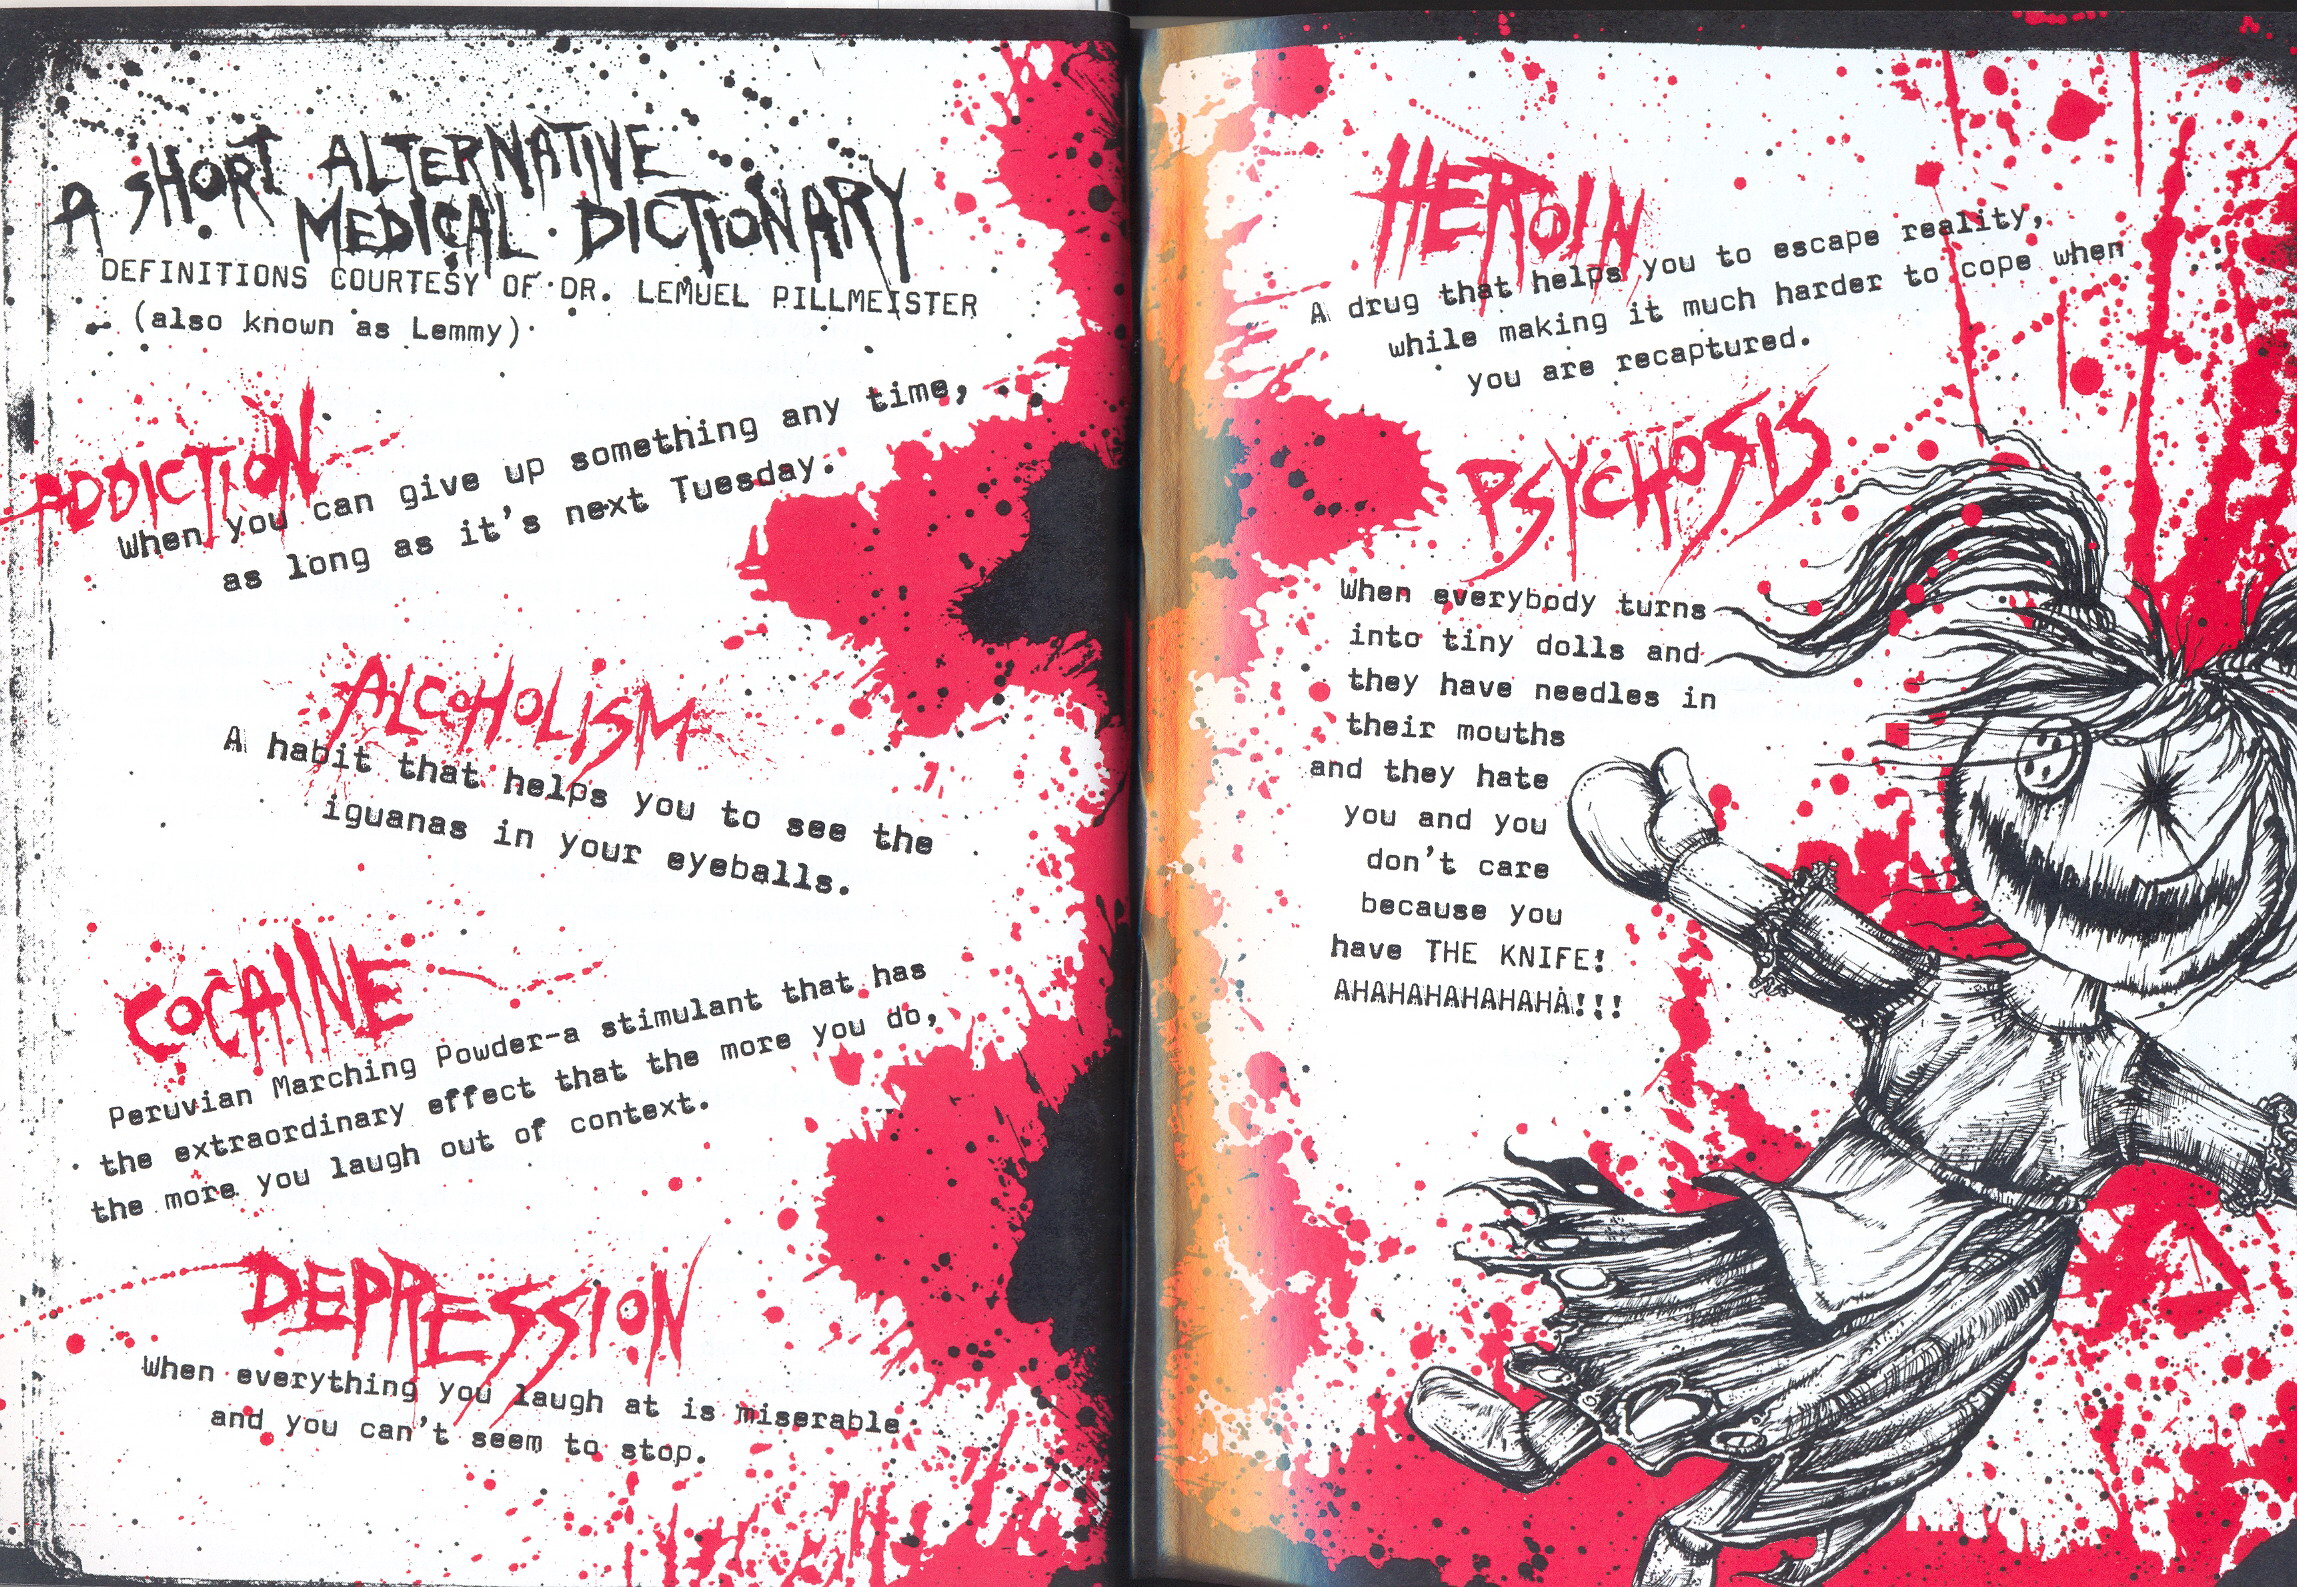 A SHORT ALTERNATIVE
MEDICAL DICTIONARY
DEFINITIONS COURTESY OF DR. LEMUEL PILLMEISTER
(also known as Lemmy)
ADDICTION
When you can give up something any time,
as long as it's next Tuesday.
ALCOHOLISM
A habit that helps you to see the
iguanas in your eyeballs.
COCAINE
Peruvian Marching Powder-a stimulant that has
the extraordinary effect that the more you do,
the more you laugh out of context.
DEPRESSION
When everything you laugh at is miserable
and you can't seem to stop.
HEROIN
A drug that helps you to escape reality,
while making it much harder to cope when
you are recaptured.
PSYCHOSIS
When everybody turns
into tiny dolls and
they have needles in
their mouths
and they hate
you and you
don't care
because you
have THE KNIFE!
AHAHAHAHAHAHA!!!